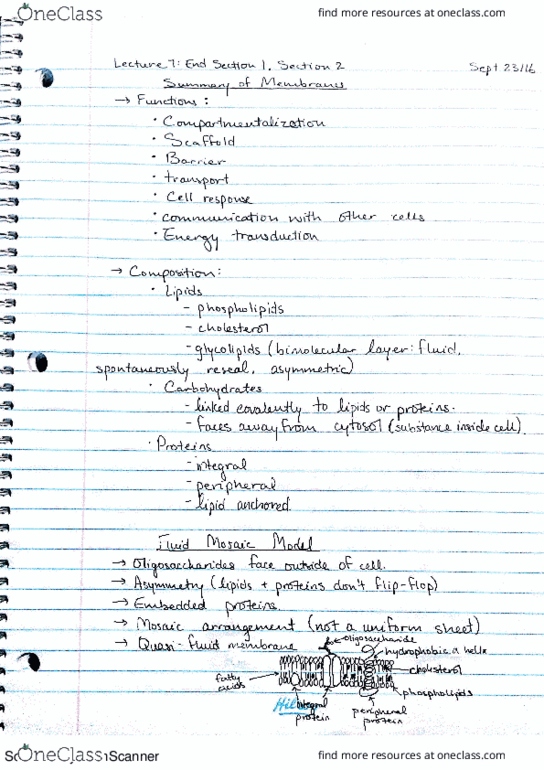 OneClass
find more resources at oneclass.com
Lecture 7: End Section 1, Section 2
Sept 23/16
Summary of Membranes
→ Functions:
· Compartmentalization
· Scaffold
· Barrier
· transport
· Cell response
· communication with other cells
· Energy transduction
→ Composition:
· Lipids
- phospholipids
- cholesterol
- glycolipids (bimolecular layer: fluid,
spontaneously reseal, asymmetric)
· Carbohydrates
- linked covalently to lipids or proteins.
- faces away from cytosol (substance inside cell).
· Proteins
- integral
- peripheral
- lipid anchored.
Fluid Mosaic Model
→ Oligosaccharides face outside of cell.
→ Asymmetry (lipids + proteins don't flip-flop)
→ Embedded proteins.
→ Mosaic arrangement (not a uniform sheet)
→ Quasi-fluid membrane
oligosaccharide
hydrophobic α helix
cholesterol
fatty acids
phospholipids
integral protein
peripheral protein
OneClass
Scanner
find more resources at oneclass.com